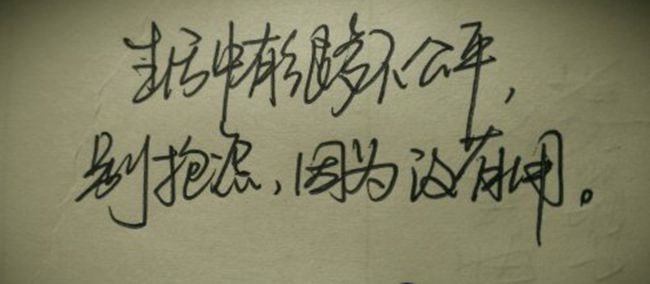 生活中有很多不公平，
别抱怨，因为没有用。